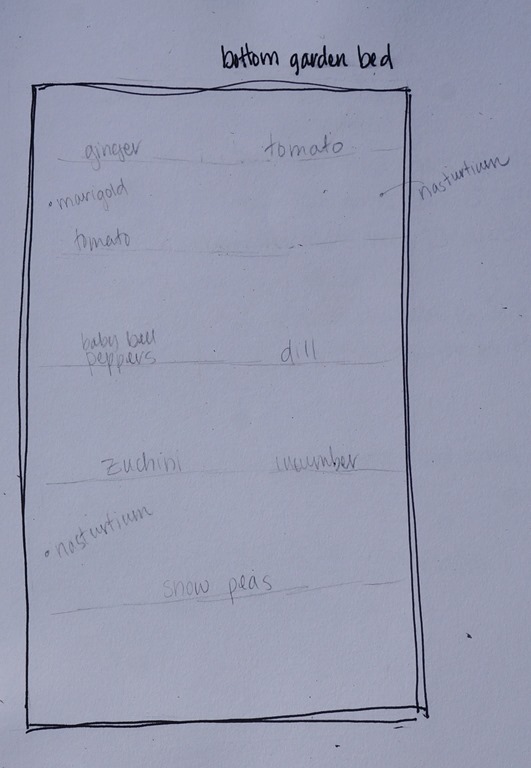 bottom garden bed
ginger tomato
marigold
nasturtium
tomato
baby bell
peppers dill
zuchini cucumber
nosturtium
snow peas